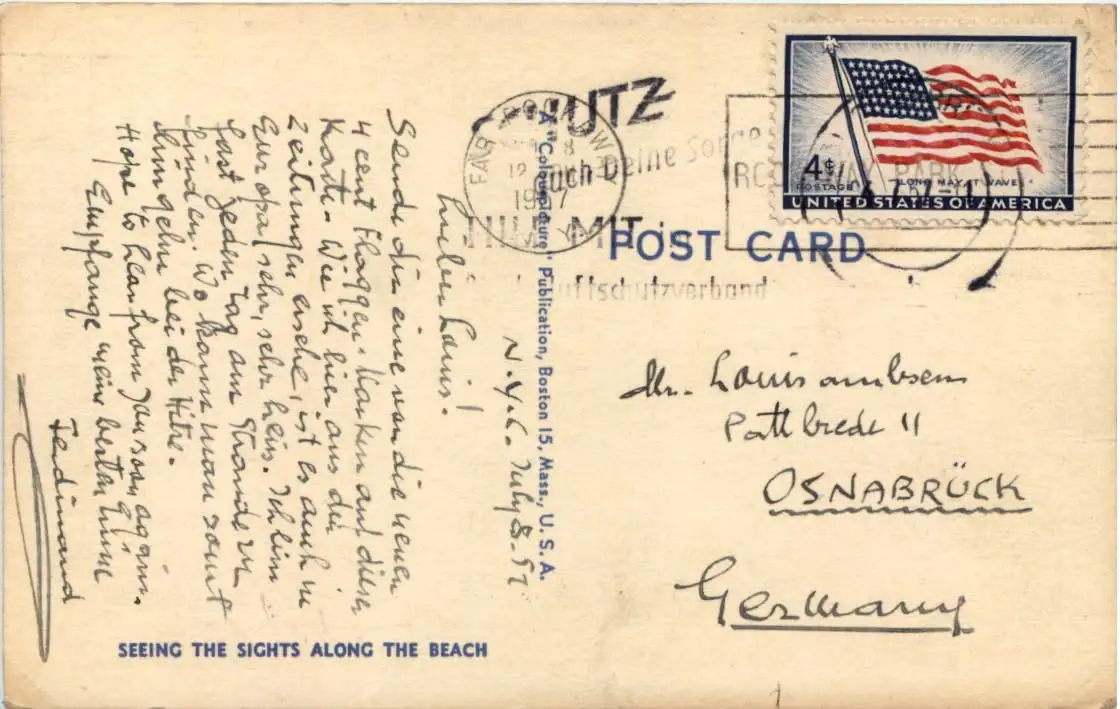 N.Y.C. July 8-57
Lieber Louis!
Sende dir eine von die neuen
4 cent Flaggen-Marken auf dieser
Karte. Wie ich hier aus die
Zeitungen ersehe, ist es auch in
Europa sehr, sehr heis. Ich bin
fast jeden Tag am Strande zu
finden. Wo kann man sonst
hingehn bei der Hitze.
Hope to hear from you soon again.
Empfange meine besten
Ferdinand
SEEING THE SIGHTS ALONG THE BEACH
A "Colourpicture" Publication, Boston 15, Mass., U. S. A.
POST CARD
FAR ROCKAWAY
12
1957
N.Y.
UTZ
auch Deine Sorge
MIT
Luftschutzverband
ROCKAWAY PARK
4¢
POSTAGE
"LONG MAY IT WAVE"
UNITED STATES OF AMERICA
Mr. Louis
Pattbrede 11
OSNABRÜCK
Germany